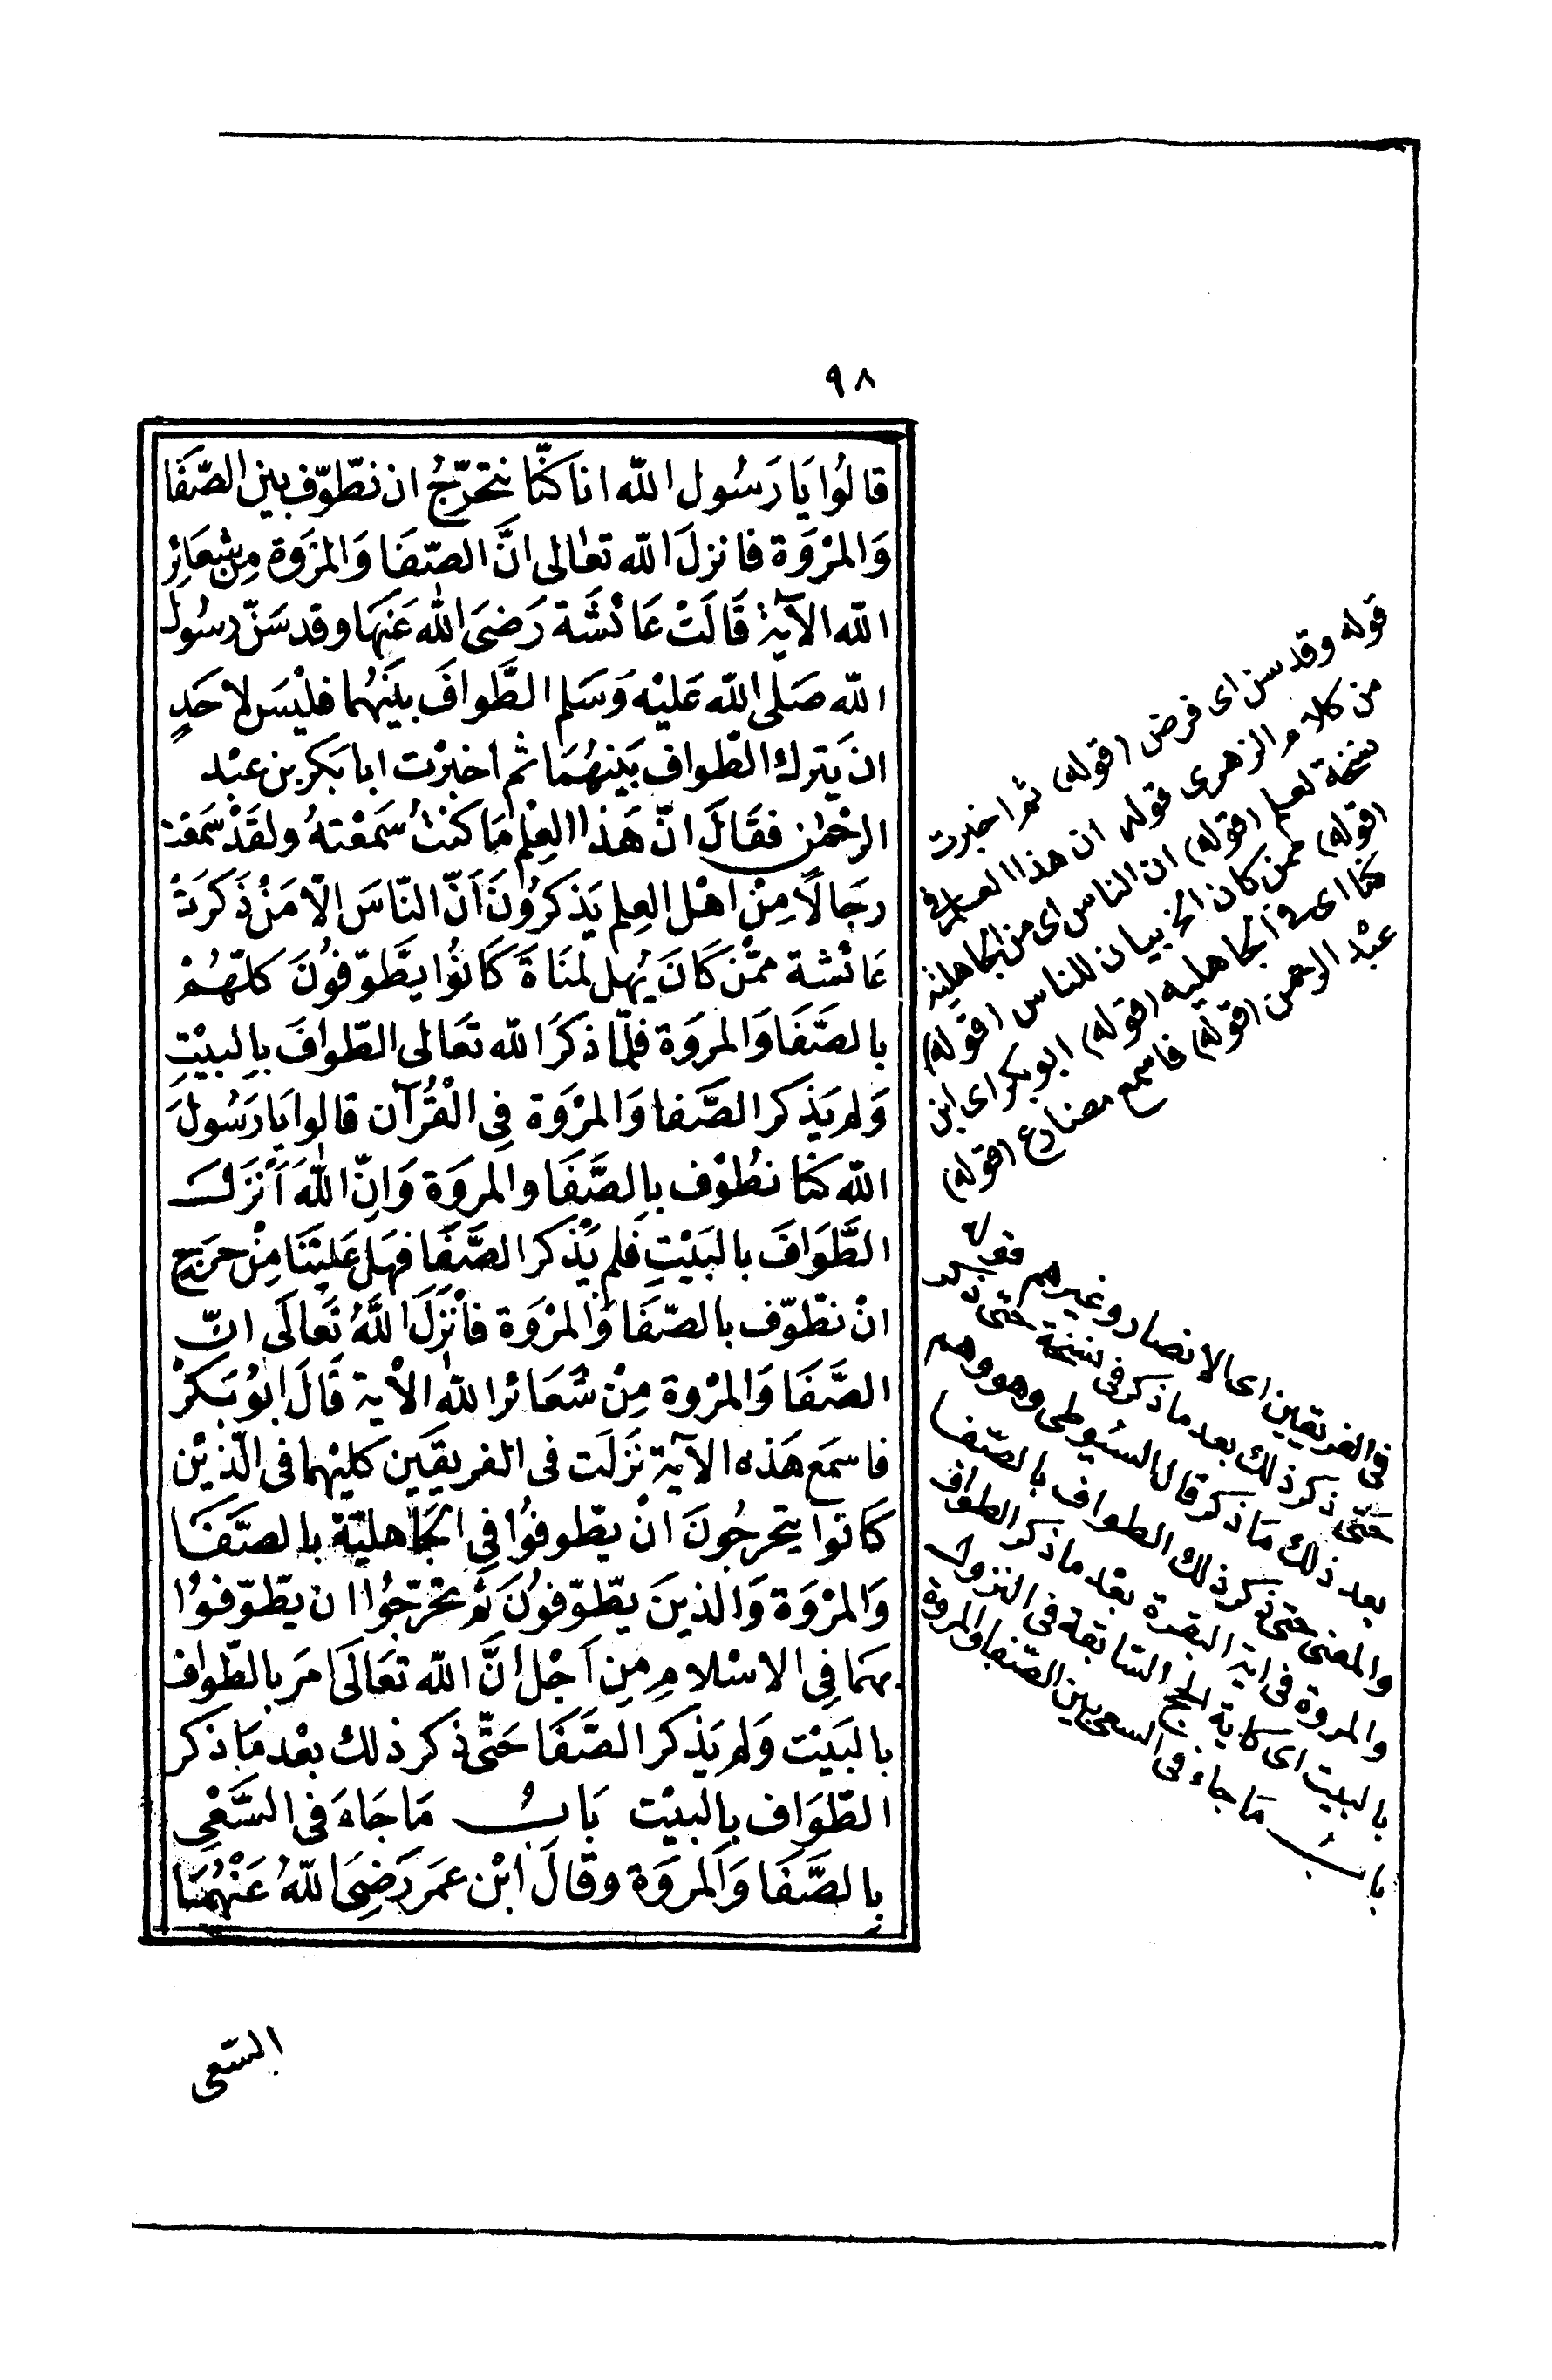 ٩٨
قالُوا يَا رَسُول الله انا كنَّا نتحَرّجُ ان نطّوّف بين الصَّفَا
وَالمرْوَة فانزلَ الله تعالى انَّ الصّفَا وَالمَروَة مِن شعَائر
الله الآية قَالَتْ عَائشَة رَضىَ الله عَنهَا وقد سَنّ رسُول
الله صَلى الله عَليْه وَسَلم الطَّوافَ بيَنهُما فليْسَ لاحَدٍ
ان يَترك الطّواف بَينهُمَا ثم اخبرْت ابا بَكر بن عبْد
الرحْمٰن فقَالَ انّ هَذا العِلْم مَا كنْتُ سَمَعْتهُ ولقَدْ سَمعْت
رجَالًا مِنْ اهْل العِلم يَذكرُونَ اَنّ النّاسَ الّا مَنْ ذَكَرَتْ
عَائشة ممّنْ كَانَ يُهل لمنَاةَ كَانوُا يطَّوّفُونَ كلّهُمْ
بالصَّفَا وَالمروَة فلمّا ذكرَ الله تعَالى الطّوافَ بالبيْتِ
وَلم يَذكر الصَّفا وَالمرْوَة فِى الْقُرآن قالوا يَا رَسُولَ
الله كنَّا نطُوْف بالصَّفَا والمروَة وَاِنّ اللهَ اَنْزَلَ
الطَّوَافَ بالبَيْتِ فَلم يَذكر الصَّفَا فهَل عَليْنَا مِنْ حرَجٍ
انْ نطّوّف بالصّفَا وَالمرْوَة فأنزَلَ اللَّهُ تَعَالَى انّ
الصَّفَا وَالمرْوة مِنْ شَعَائر الله الاٰية قَالَ ابوُ بَكرْ
فاسمَع هَذه الآية نَزَلَت فى الفريقَين كليْهما فى الّذيْن
كانوا يتحرجُونَ انْ يطّوفوُا فِى الجَاهليّة بالصَّفَا
وَالمرْوَة وَالذينَ يطّوّفونُ ثم تحَرّجوُا ان يطّوّفوُا
بهمَا فِى الاسْلام مِن اَجْل انَّ الله تعَالَى امَر بالطّواف
بالبَيْت وَلم يَذكر الصَّفَا حَتّى ذكر ذلك بعْد مَا ذكر
الطّوَاف بالبيْت بَابُ مَا جَاءَ فى السَّعْى
بالصَّفَا وَالمروَة وقالَ ابْن عمَر رَضىَ اللهُ عَنْهُمَا
قوله وقد سن اى فرض (قوله) ثم اخبرت
من كلام الزهرى قوله ان هذا العلم فى
نسخة لعلم (قوله) ان الناس اى من الجاهلية
(قوله) ممن كان الخ بيان للناس (قوله)
كنا اى فى الجاهليه (قوله) ابو بكر اى ابن
عبْد الرحمن (قوله) فاسمع مضارع (قوله)
فى الفريقين اى الانصار وغيرهم قوله
حتّى ذكر ذلك بعد ما ذكر فى نسخة حتى ذكر
بعد ذلك مَا ذكر قال السيُوطى وهو وهم
والمعنى حتى ذكر ذلك الطواف بالصّفا
والمروة فى اية البقرة بعْد ما ذكر الطواف
بالبيت اى كاية الحج السّابقة فى النزول
بابُ مَا جاء فى السعى بين الصّفا والمروة
السّعى